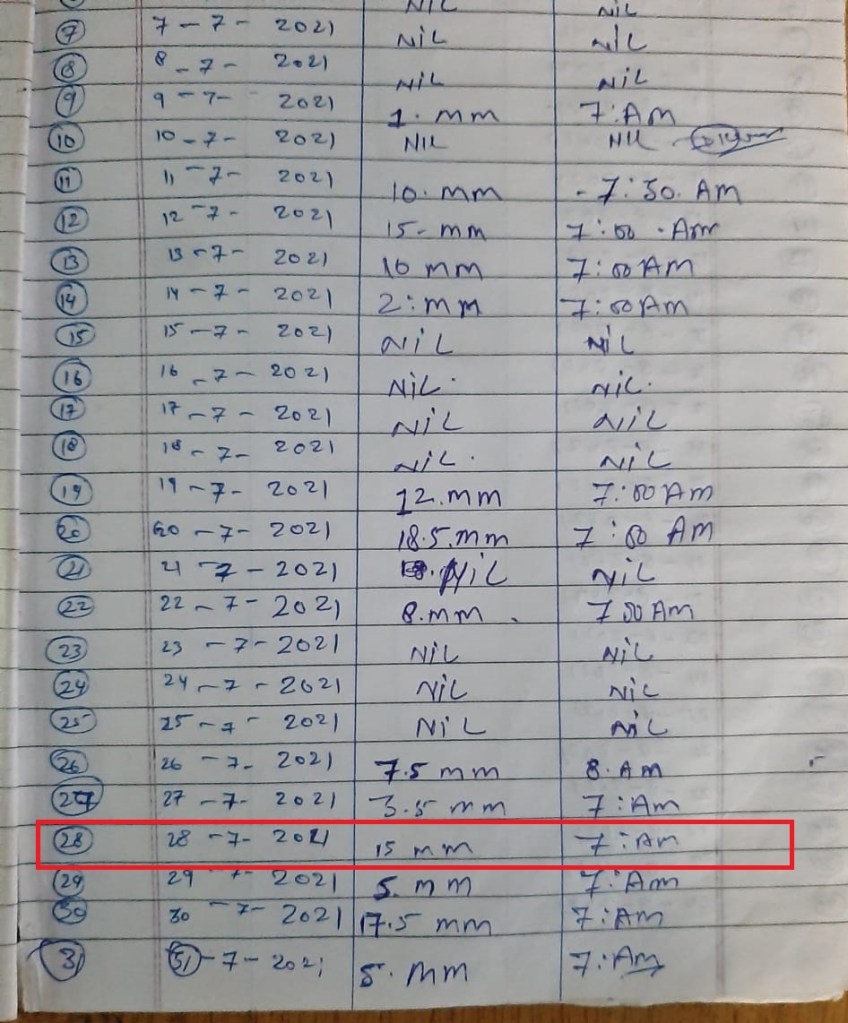 NIL NIL
7 7-7- 2021 NiL NiL
8 8-7- 2021 NiL NiL
9 9-7- 2021 1. mm 7:AM
10 10-7- 2021 NIL NIL
11 11-7- 2021 10. mm -7:30. AM
12 12-7- 2021 15- mm 7:00 .Am
13 13-7- 2021 10 mm 7:00AM
14 14-7- 2021 2:mm 7:00AM
15 15-7- 2021 NiL NiL
16 16-7-2021 NiL. NiL.
17 17-7- 2021 NiL NiL
18 18-7- 2021 NiL. NiL
19 19-7- 2021 12.mm 7:00Am
20 20-7- 2021 18.5.mm 7:00 Am
21 21-7-2021 NiL NiL
22 22-7-2021 8.mm 7 00Am
23 23-7-2021 NiL NiL
24 24-7-2021 NiL NiL
25 25-7- 2021 NiL NiL
26 26-7- 2021 7.5 mm 8.AM
27 27-7- 2021 3.5 mm 7:Am
28 28-7- 2021 15 mm 7:Am
29 29 7- 2021 5. mm 7:Am
30 30 -7- 2021 17.5 mm 7:AM
31 31-7-2021 5. mm 7:Am